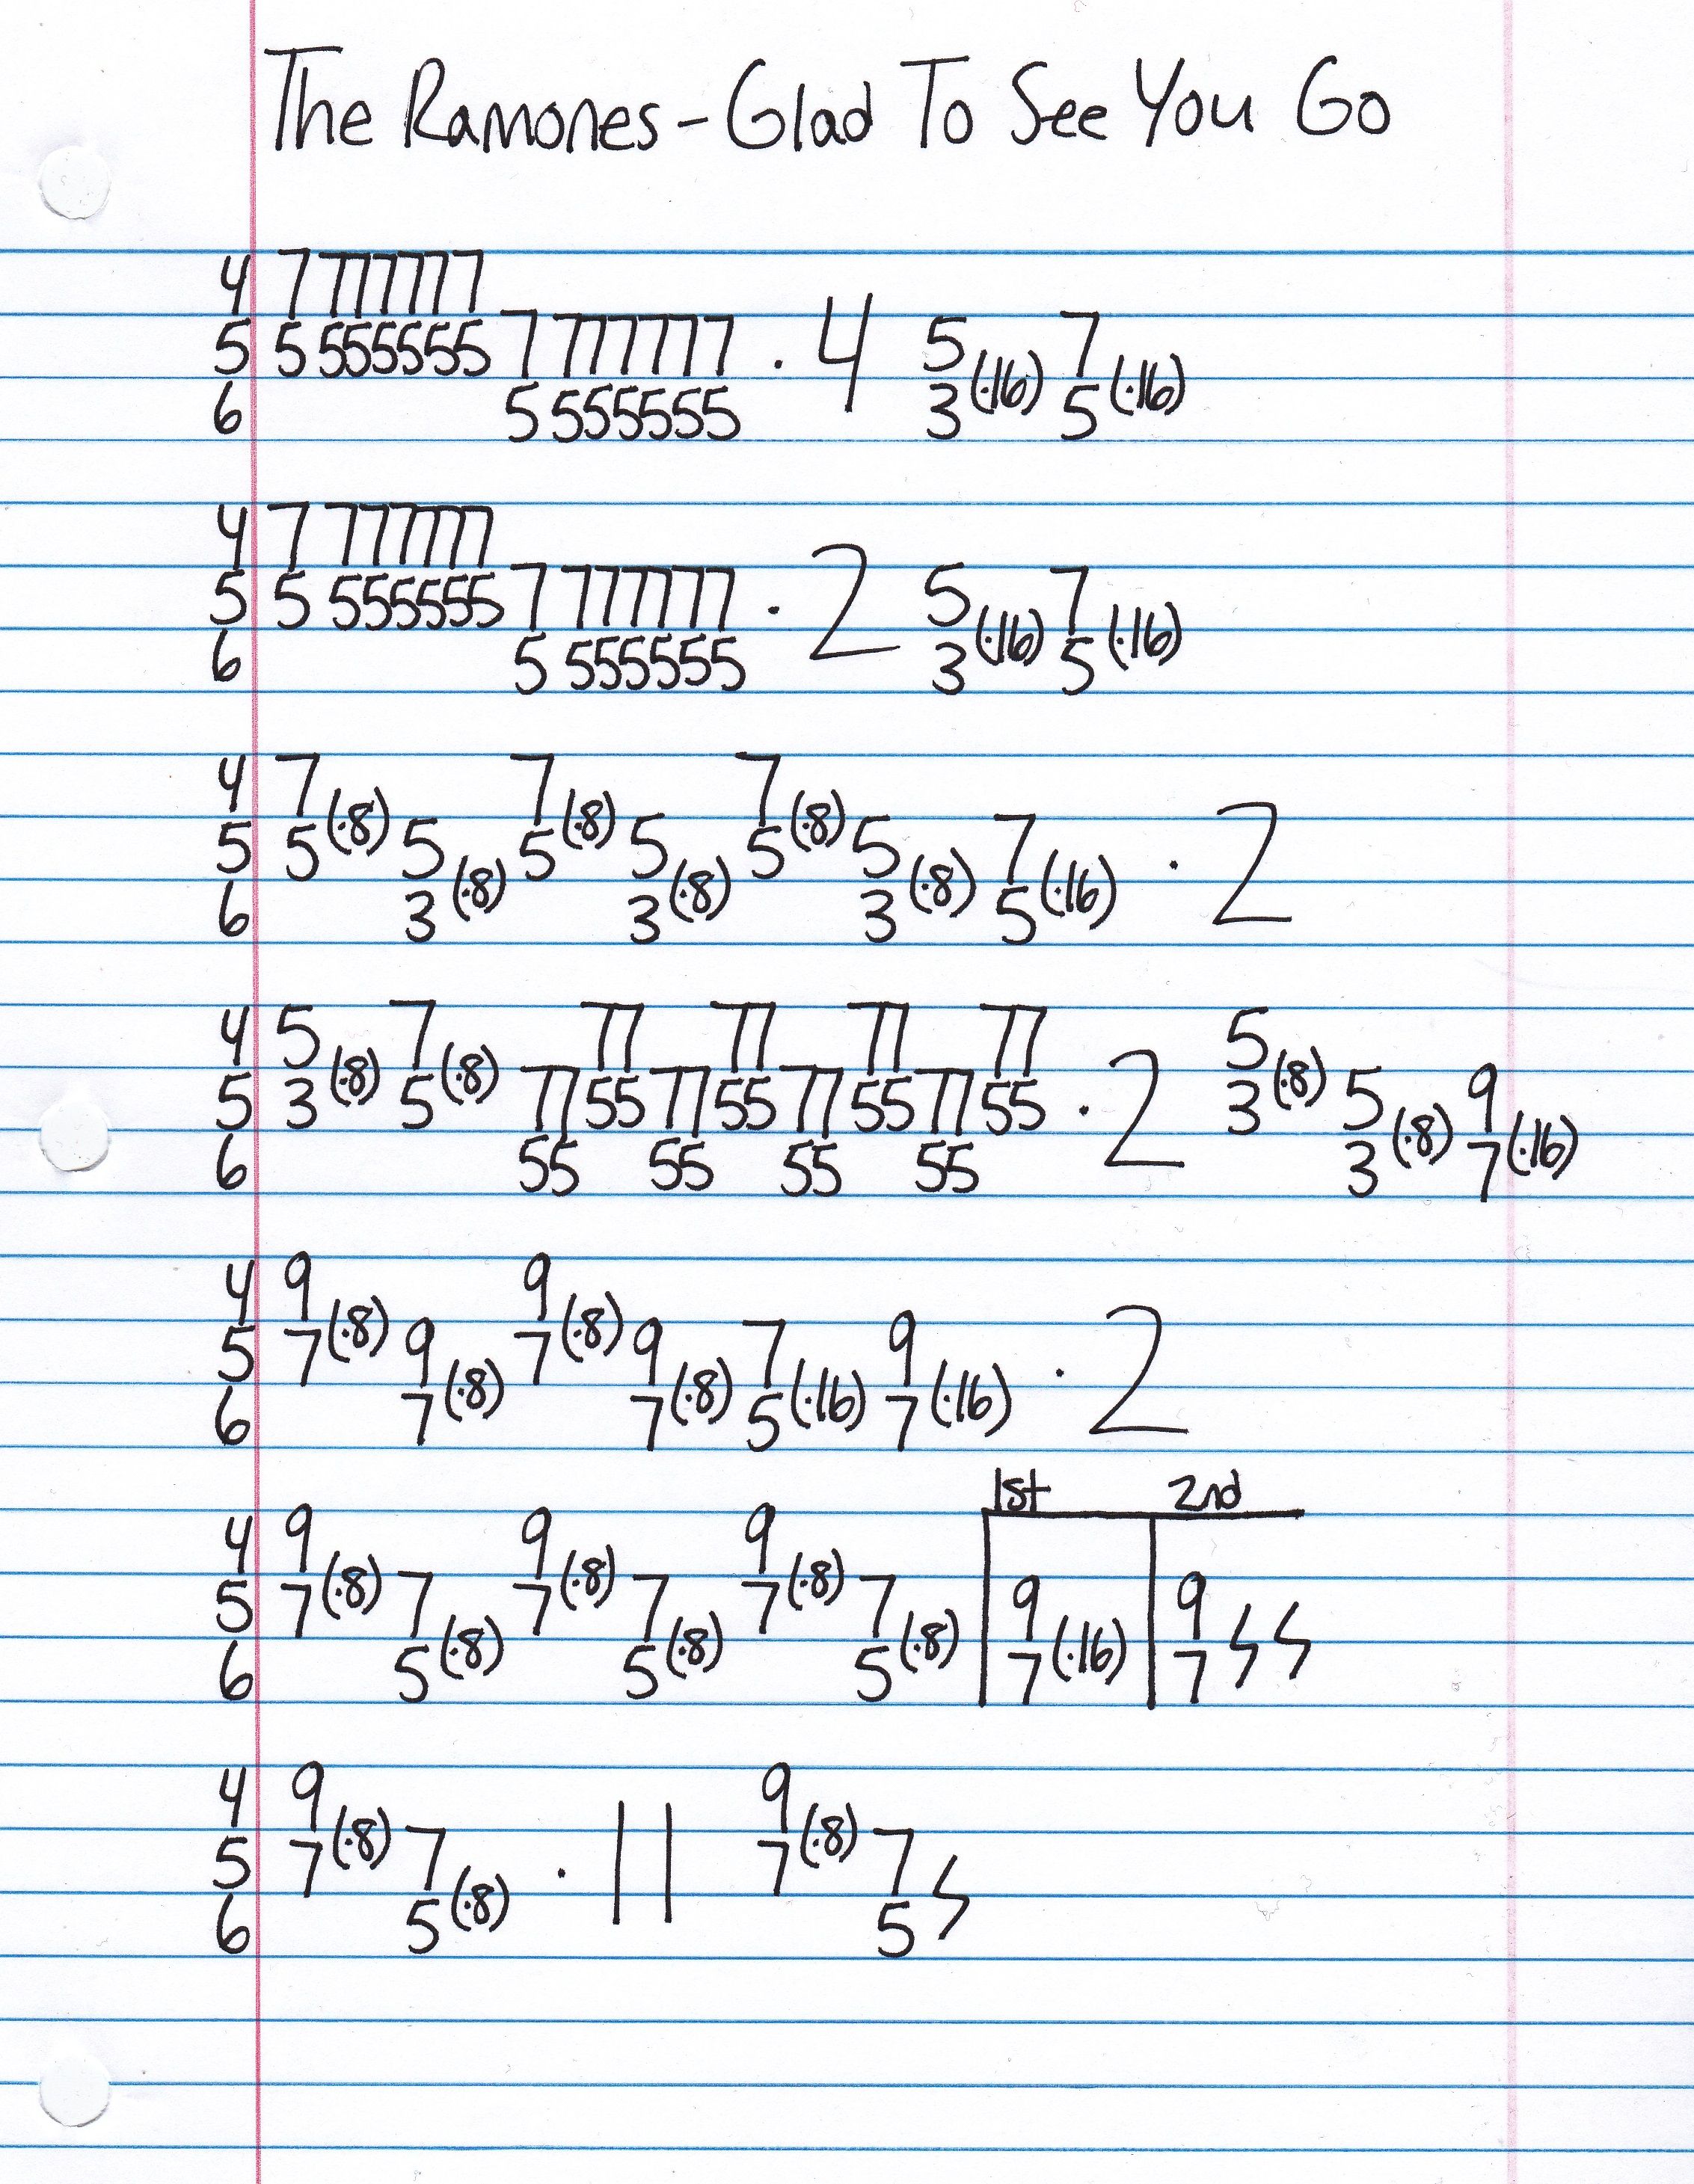 The Ramones - Glad To See You Go
4 7 777777
5 5 555555 7 777777 · 4 5 (·16) 7 (·16)
6 5 555555 3 5
4 7 777777
5 5 555555 7 777777 · 2 5 (·16) 7 (·16)
6 5 555555 3 5
4 7 (·8) 7 (·8) 7 (·8)
5 5 5 5 5 5 5 7 · 2
6 3 (·8) 3 (·8) 3 (·8) 5 (·16)
4 5 7 77 77 77 77 5
5 3 (·8) 5 (·8) 77 55 77 55 77 55 77 55 · 2 3 (·8) 5 9
6 55 55 55 55 3 (·8) 7 (·16)
4 9 9
5 7 (·8) 9 7 (·8) 9 7 9 · 2
6 7 (·8) 7 (·8) 5 (·16) 7 (·16)
1st 2nd
4 9 9 9
5 7 (·8) 7 7 (·8) 7 7 (·8) 7 9 9
6 5 (·8) 5 (·8) 5 (·8) 7 (·16) 7
4 9 9
5 7 (·8) 7 · 11 7 (·8) 7
6 5 (·8) 5